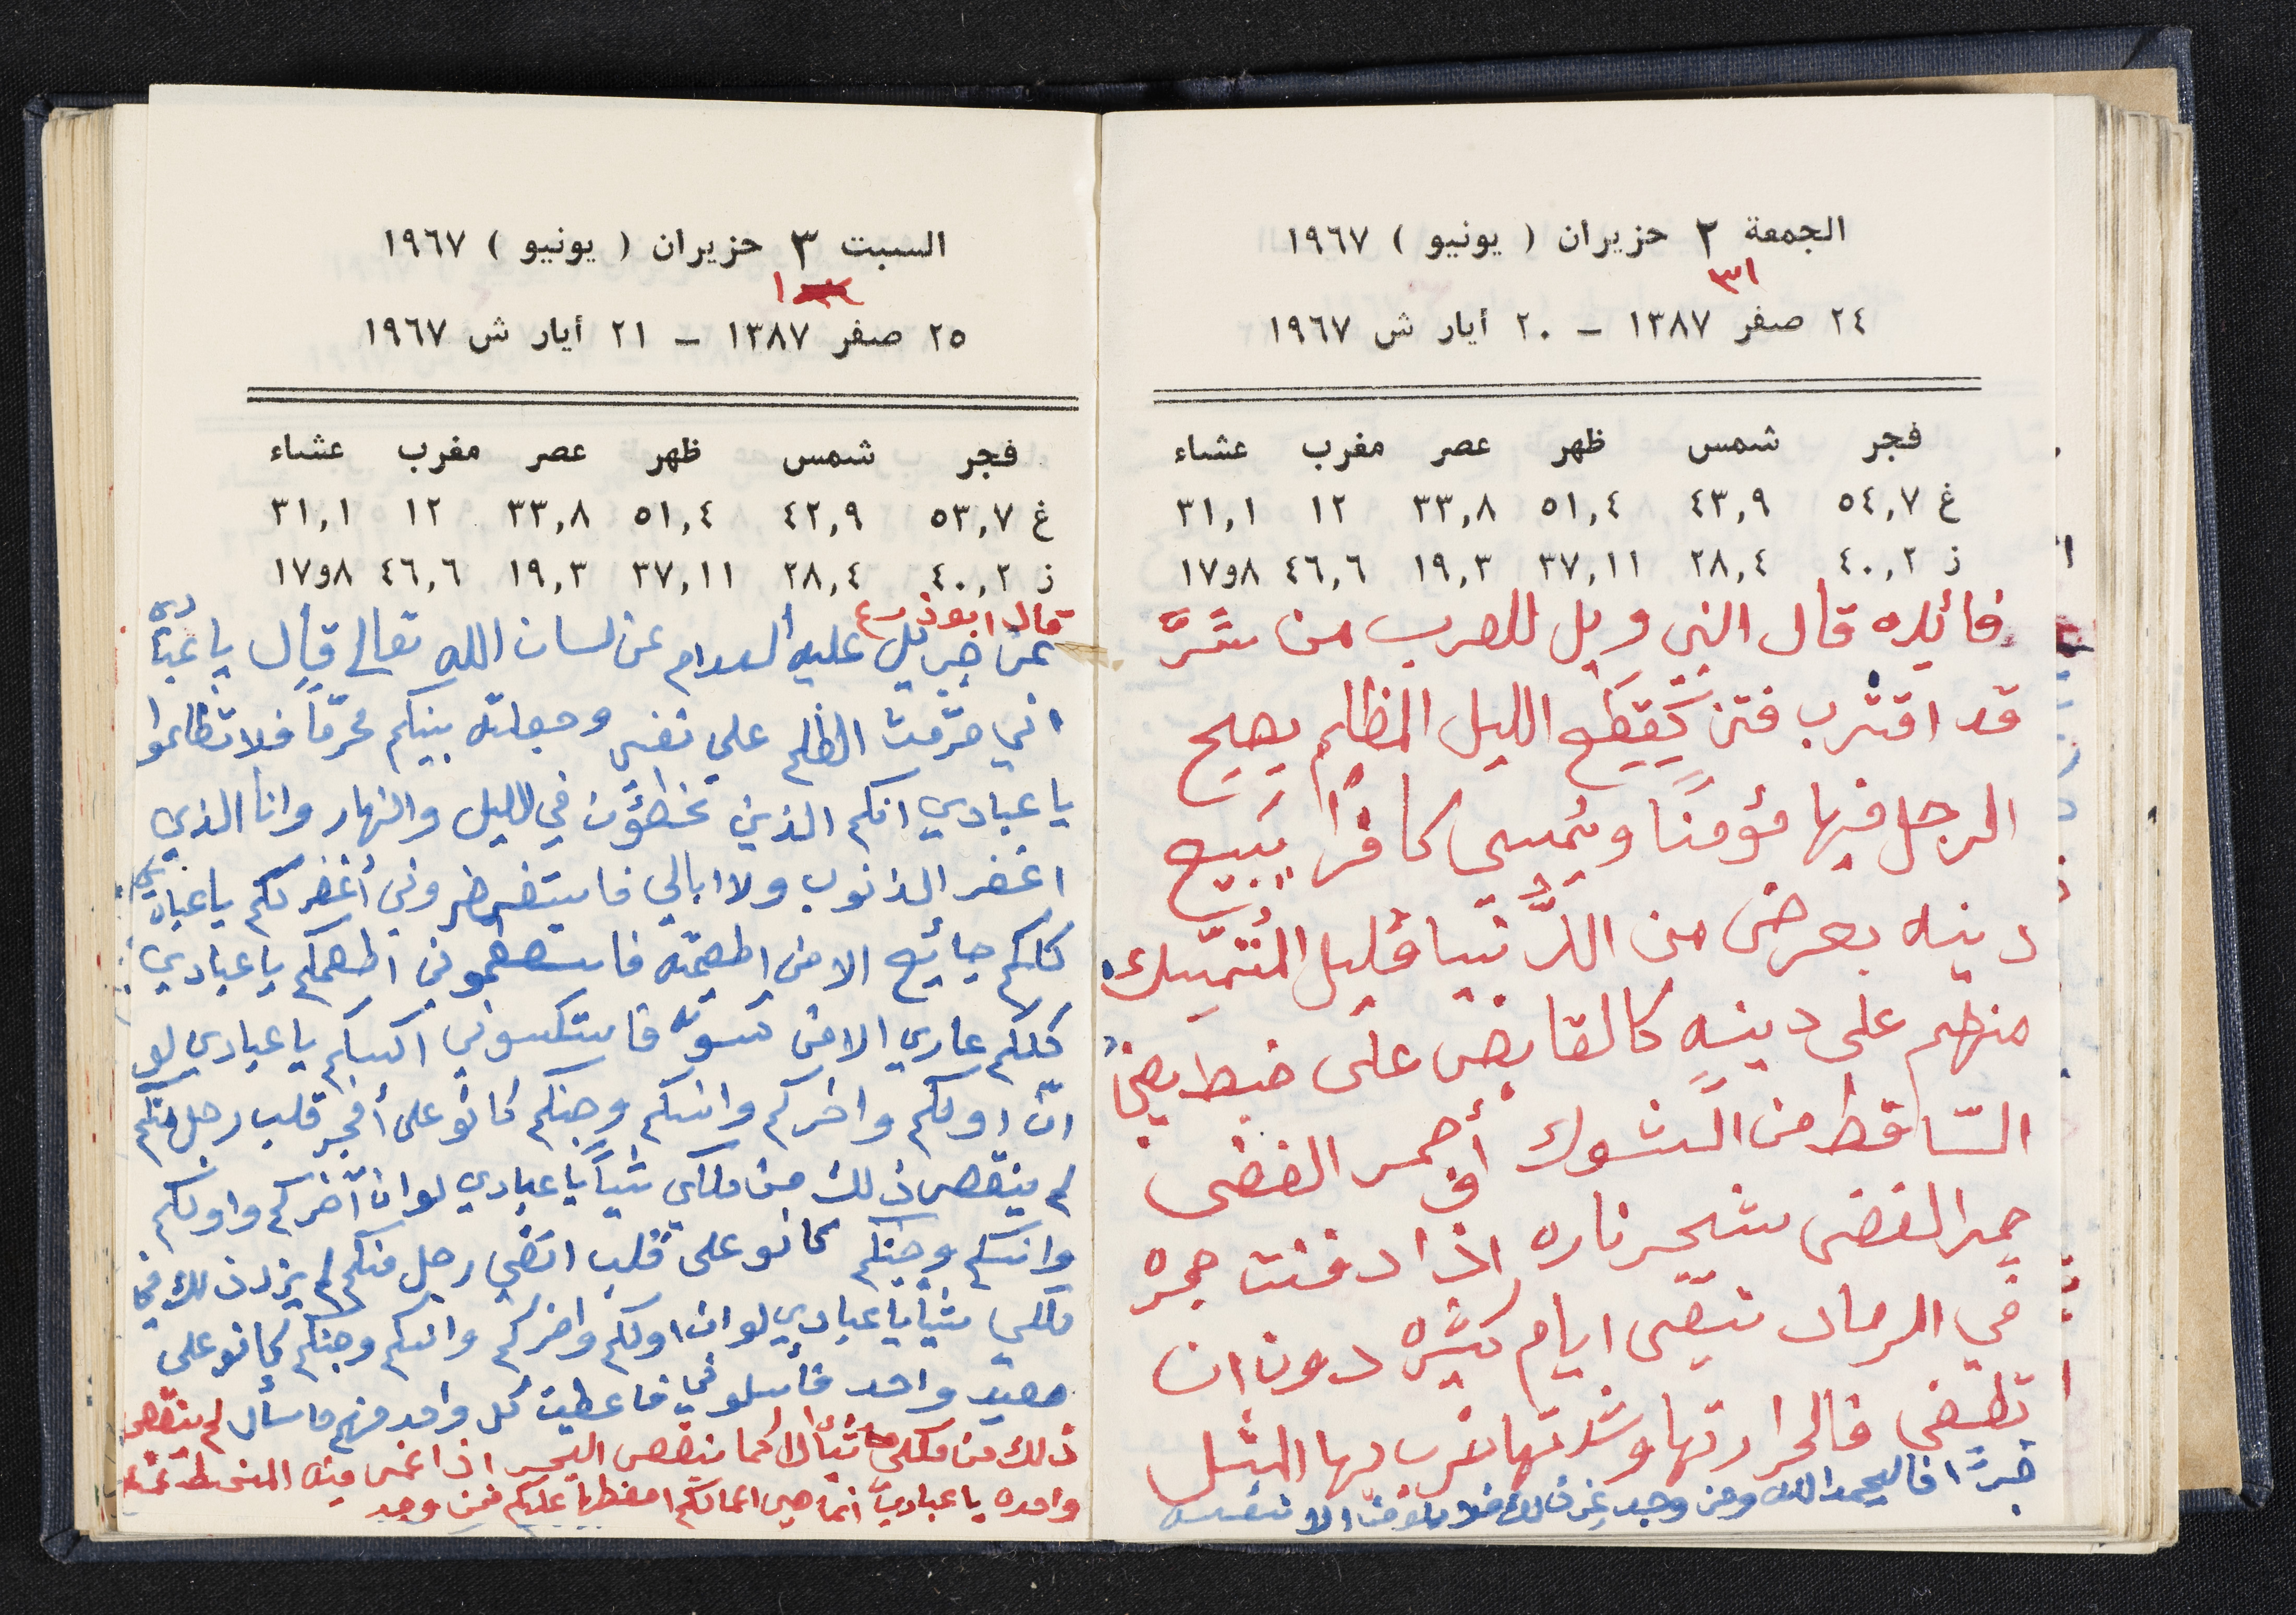 الجمعة ٢ حزيران ( يونيو ) ١٩٦٧
٣١
٢٤ صفر ١٣٨٧ – ٢٠ أيار ش ١٩٦٧
فجر شمس ظهر عصر مغرب عشاء
غ ٥٤,٧ ٤٣,٩ ٥١,٤ ٣٣,٨ ١٢ ٣١,١
ز ٤٠,٢ ٢٨,٤ ٣٧,١١ ١٩,٣ ٤٦,٦ ٨و١٧
فائيده قال النبي ويل للعرب من شَرَّ
قد اقترب فتن كَقِطَعِ الليل المظلم يصبح
الرجل فيها مؤمنًا ويُمسي كافرًا يبيع
دينه بعرض من الدُّنيا قليل المُتمَسِك
منهم على دينهِ كالقابض على خبط
السّاقط من الشوك أجمر الغضى
جمر الغضى شجر ناره اذا دفنت جمره
في الرماد تبقى ايام كثيره دون ان
تطفي فالحرارتها وشدتها ضرب بها المثل
خيرًا فاليحمد الله ومن وجد غير ذلك فلا يلومن الا نفسه
السبت ٣ حزيران ( يونيو ) ١٩٦٧
١
٢٥ صفر ١٣٨٧ – ٢١ أيار ش ١٩٦٧
فجر شمس ظهر عصر مغرب عشاء
غ ٥٣,٧ ٤٢,٩ ٥١,٤ ٣٣,٨ ١٢ ٣١,١
ز ٤٠,٢ ٢٨,٤ ٣٧,١١ ١٩,٣ ٤٦,٦ ٨و١٧
قال ابوذر
عن جبريل عليه السلام عن لسان الله تعالى قال يا عبادي
اني حرّمت الظلم على نفسي وجعلته بينكم محرّمًا فلا تظالموا
يا عبادي انكم الذين تخطؤن في الليل والنهار وانا الذي
اغفر الذنوب ولا ابالي فاستغفروني أغفر لكم يا عبادي
كلكم جائع الا من اطعمته فاستطعموني اطعمكم يا عبادي
كلكم عاري الا من كسوته فاستكسوني اكسكم يا عبادي لو
انّ اولكم واخركم وانسكم وجنكم كانو على أفجر قلب رجل منكم
لم ينقص ذلك من ملكي شيأً يا عبادي لو ان آخركم واولكم
وانسكم وجنكم كانو على قلب اتقي رجل منكم لم يزد ذلك في
ملكي شيأً يا عبادي لو ان اولكم واخركم وانسكم وجنكم كانو على
صعيد واحد فأسلوني فاعطيت كل واحد منهم ما سأل لم ينقص
ذلك من ملكي شيأً الا كما ينقص البحر اذا غمس فيه المخيط غمسة
واحده يا عبادي انما هي اعمالكم احفظها عليكم فمن وجد